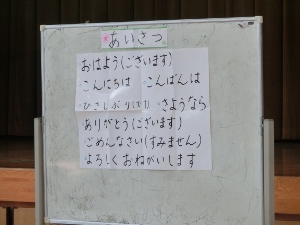 あいさつ
おはよう(ございます)
こんにちは こんばんは
ひさしぶり(です) さようなら
ありがとう(ございます)
ごめんなさい(すみません)
よろしくおねがいします